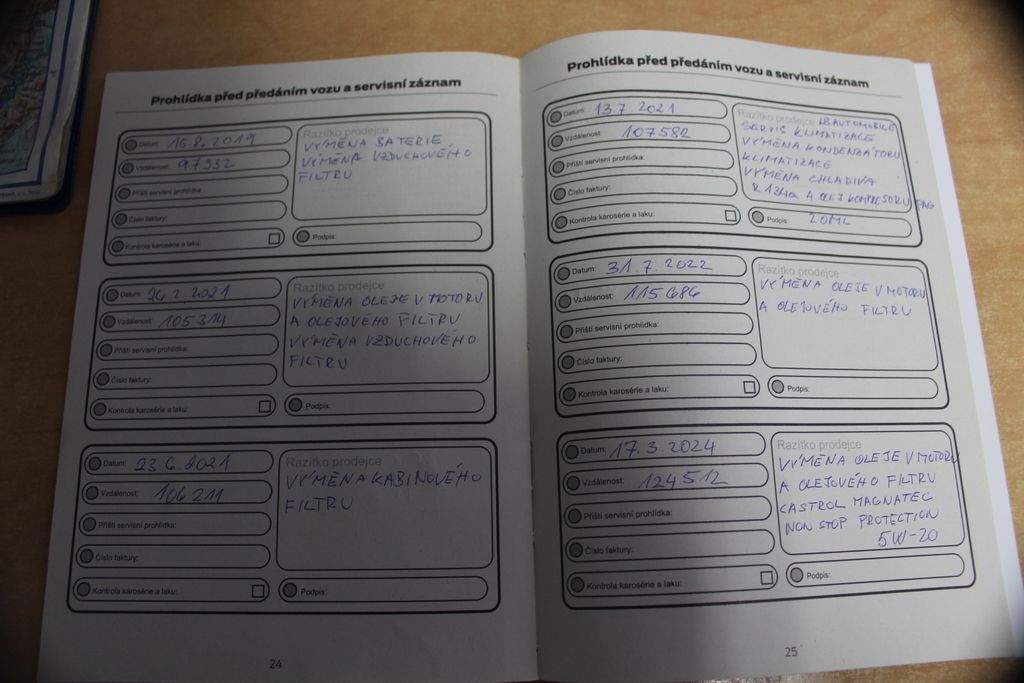 Prohlídka před předáním vozu a servisní záznam
Datum: 15.8.2019
Vzdálenost: 97932
Příští servisní prohlídka:
Číslo faktury:
Kontrola karosérie a laku:
Razítko prodejce
VÝMĚNA BATERIE,
VÝMĚNA VZDUCHOVÉHO
FILTRU
Podpis:
Datum: 26.2.2021
Vzdálenost: 105314
Příští servisní prohlídka:
Číslo faktury:
Kontrola karosérie a laku:
Razítko prodejce
VÝMĚNA OLEJE V MOTORU
A OLEJOVÉHO FILTRU
VÝMĚNA VZDUCHOVÉHO
FILTRU
Podpis:
Datum: 23.6.2021
Vzdálenost: 106211
Příští servisní prohlídka:
Číslo faktury:
Kontrola karosérie a laku:
Razítko prodejce
VÝMĚNA KABINOVÉHO
FILTRU
Podpis:
24
Prohlídka před předáním vozu a servisní záznam
Datum: 13.7.2021
Vzdálenost: 107582
Příští servisní prohlídka:
Číslo faktury:
Kontrola karosérie a laku:
Razítko prodejce LBAUTOMOBILE
SERVIS KLIMATIZACE
VÝMĚNA KONDENZÁTORU
KLIMATIZACE
VÝMĚNA CHLADIVA
R134a A OLEJ KOMPRESORU PAG
Podpis: 20ML
Datum: 31.7.2022
Vzdálenost: 115686
Příští servisní prohlídka:
Číslo faktury:
Kontrola karosérie a laku:
Razítko prodejce
VÝMĚNA OLEJE V MOTORU
A OLEJOVÉHO FILTRU
Podpis:
Datum: 17.3.2024
Vzdálenost: 124512
Příští servisní prohlídka:
Číslo faktury:
Kontrola karosérie a laku:
Razítko prodejce
VÝMĚNA OLEJE V MOTORU
A OLEJOVÉHO FILTRU
CASTROL MAGNATEC
NON STOP PROTECTION
5W-20
Podpis:
25